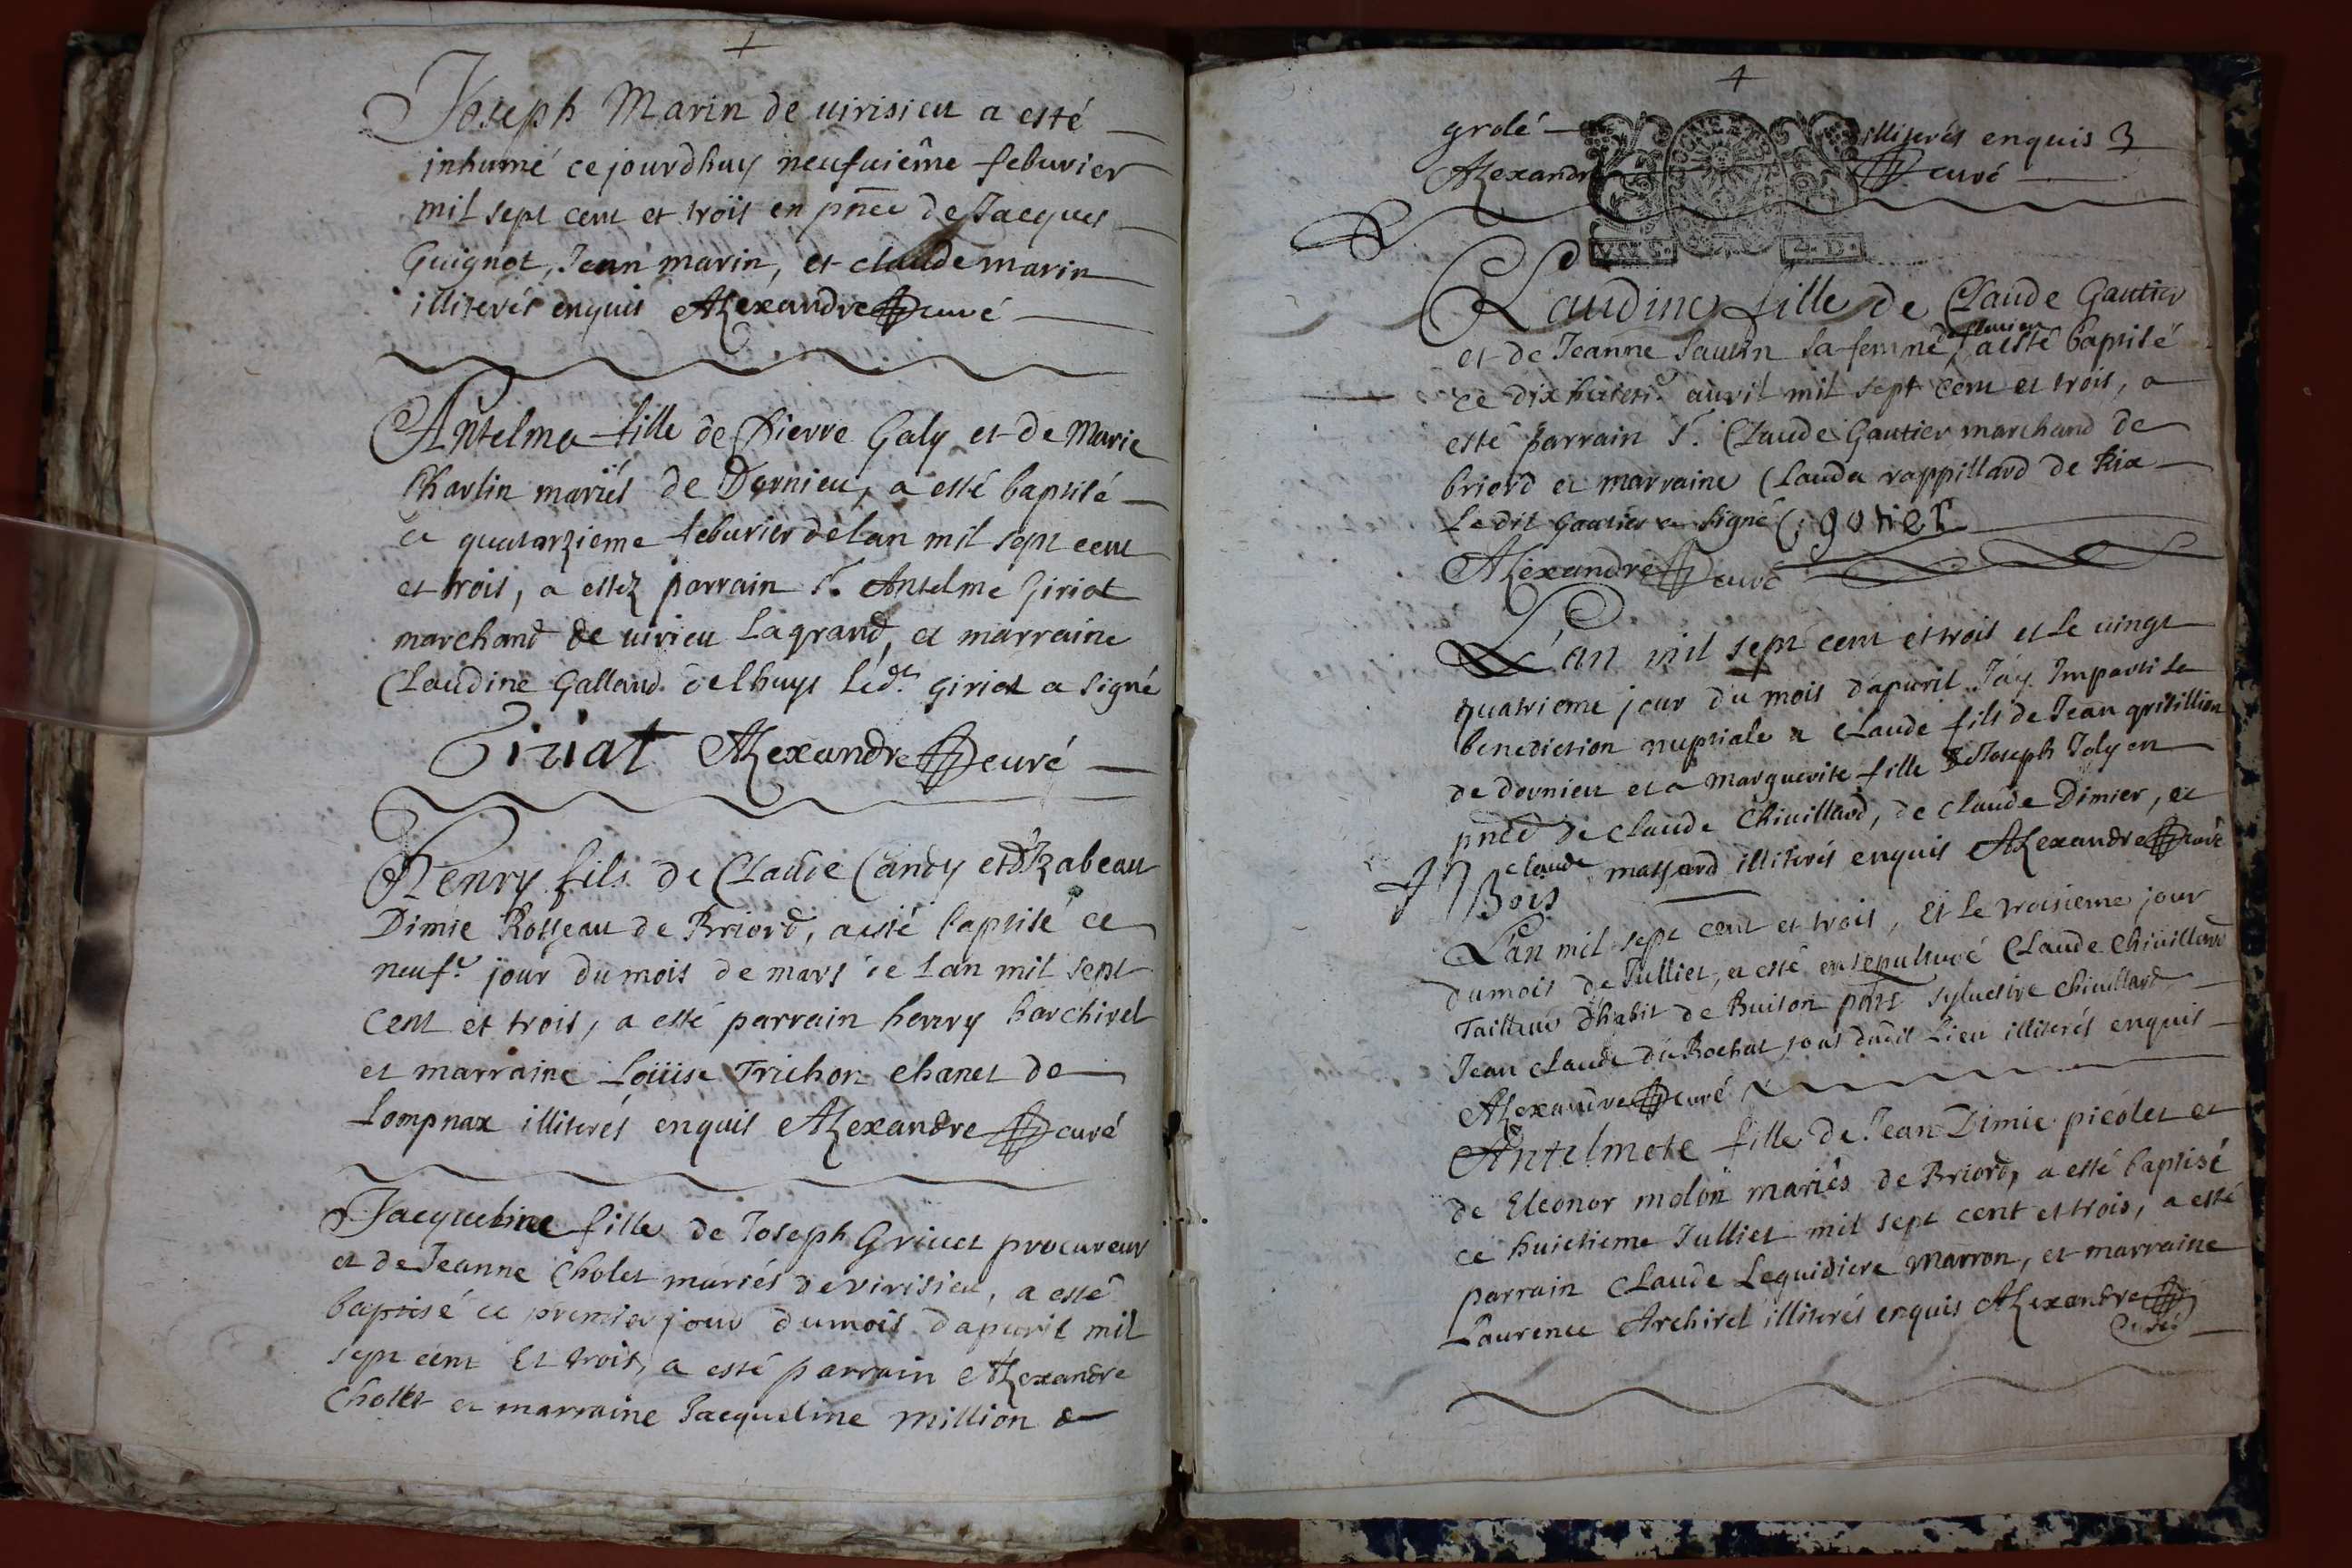 Joseph Marin de uirisieu a esté
inhumé ce jourdhuy neufuième feburier
mil sept cent et trois en pnce de Jacques
Guignot, Jean marin, et claude marin
illiterés enquis Alexandre curé
Antelma fille de Pierre Galy et de Marie
Charlin mariés de Dornieu, a esté baptisé
ce quatorzieme feburier de lan mil sept cent
et trois, a estez parrain Sr. Antelme Giriat
marchand de uirieu Lagrand, et marraine
Claudine Galland delhuys Led.t giriat a signé
Giriat Alexandre curé
Henry fils de Claude Candy et dIzabeau
Dimie Rosseau de Briord, a esté baptisé ce
neufe. jour du mois de mars de Lan mil sept
cent et trois, a esté parrain henry harchirel
et marraine Loüise Trichon chanet de
Lompnax illiterés enquis Alexandre curé
Jacqueline fille de Joseph Griuet procureur
et de Jeanne Cholet mariés de virisieu, a esté
baptisé ce premier jour du mois dapuril mil
sept cent Et trois, a esté parrain Alexandre
Cholet et marraine Jacqueline million de
grolé illiterés enquis 3
Alexandre curé
Claudine fille de Claude Gautier
et de Jeanne Sautin sa femme a esté baptisé
ce dixhuiti. auril mil sept cent et trois, a
esté parrain Sr. Claude Gautier marchand de
briord et marraine Clauda rappillard de Rix
Le dit Gautier a signé C. gotier
Alexandre curé
L'an mil sept cent et trois et le uingt
quatrieme jour du mois dapuril Jay Imparti la
benediction nuptiale a claude fils de Jean grisillion
de dornieu et a Marguerite fille de Joseph Joly en
pnce de claude Chiuillard, de claude Dimier, et
claude massard illiterés enquis Alexandre curé
Bois
Lan mil sept cent et trois, Et le troisieme jour
du mois de Julliet, a esté ensepulturé Claude Chiuillard
Tailleur dhabit de Buison pnts syluestre chiuillard
Jean claude du Rochat tous dudit Lieu illiterés enquis
Alexandre curé
Antelmete fille de Jean Dimie picolet et
de Eleonor molon mariés de Briord, a esté baptisé
ce huictieme Julliet mil sept cent et trois, a esté
parrain Claude Lequidiere Marron, et marraine
Laurence Archirel illiterés enquis Alexandre
Curé